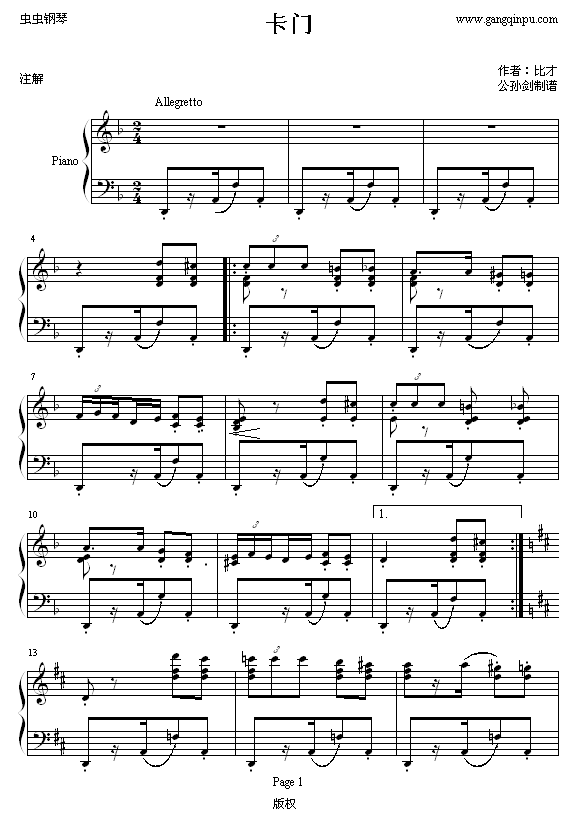 虫虫钢琴
卡门
www.gangqinpu.com
注解
作者：比才
公孙剑制谱
Allegretto
Piano
4
3
7
3
3
3
10
1.
3
13
3
Page 1
版权